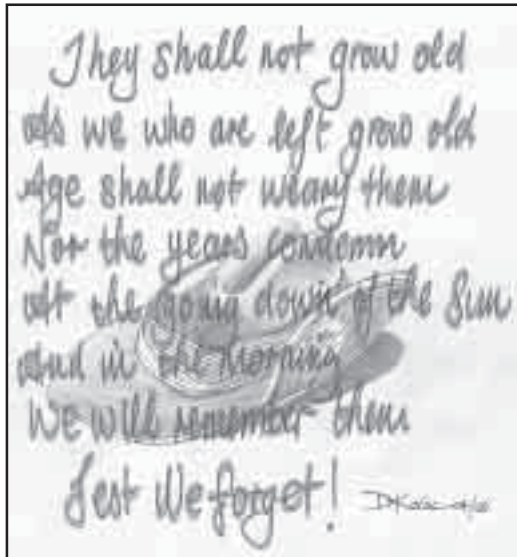 They shall not grow old
As we who are left grow old
Age shall not weary them
Nor the years condemn
At the going down of the Sun
And in the Morning
We will remember them
Lest We forget!